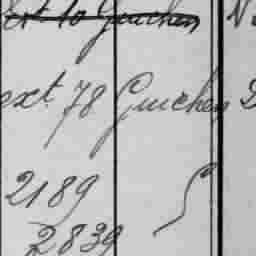 ext 10 Guichen N
ext 78 Guichen D
2189
2839